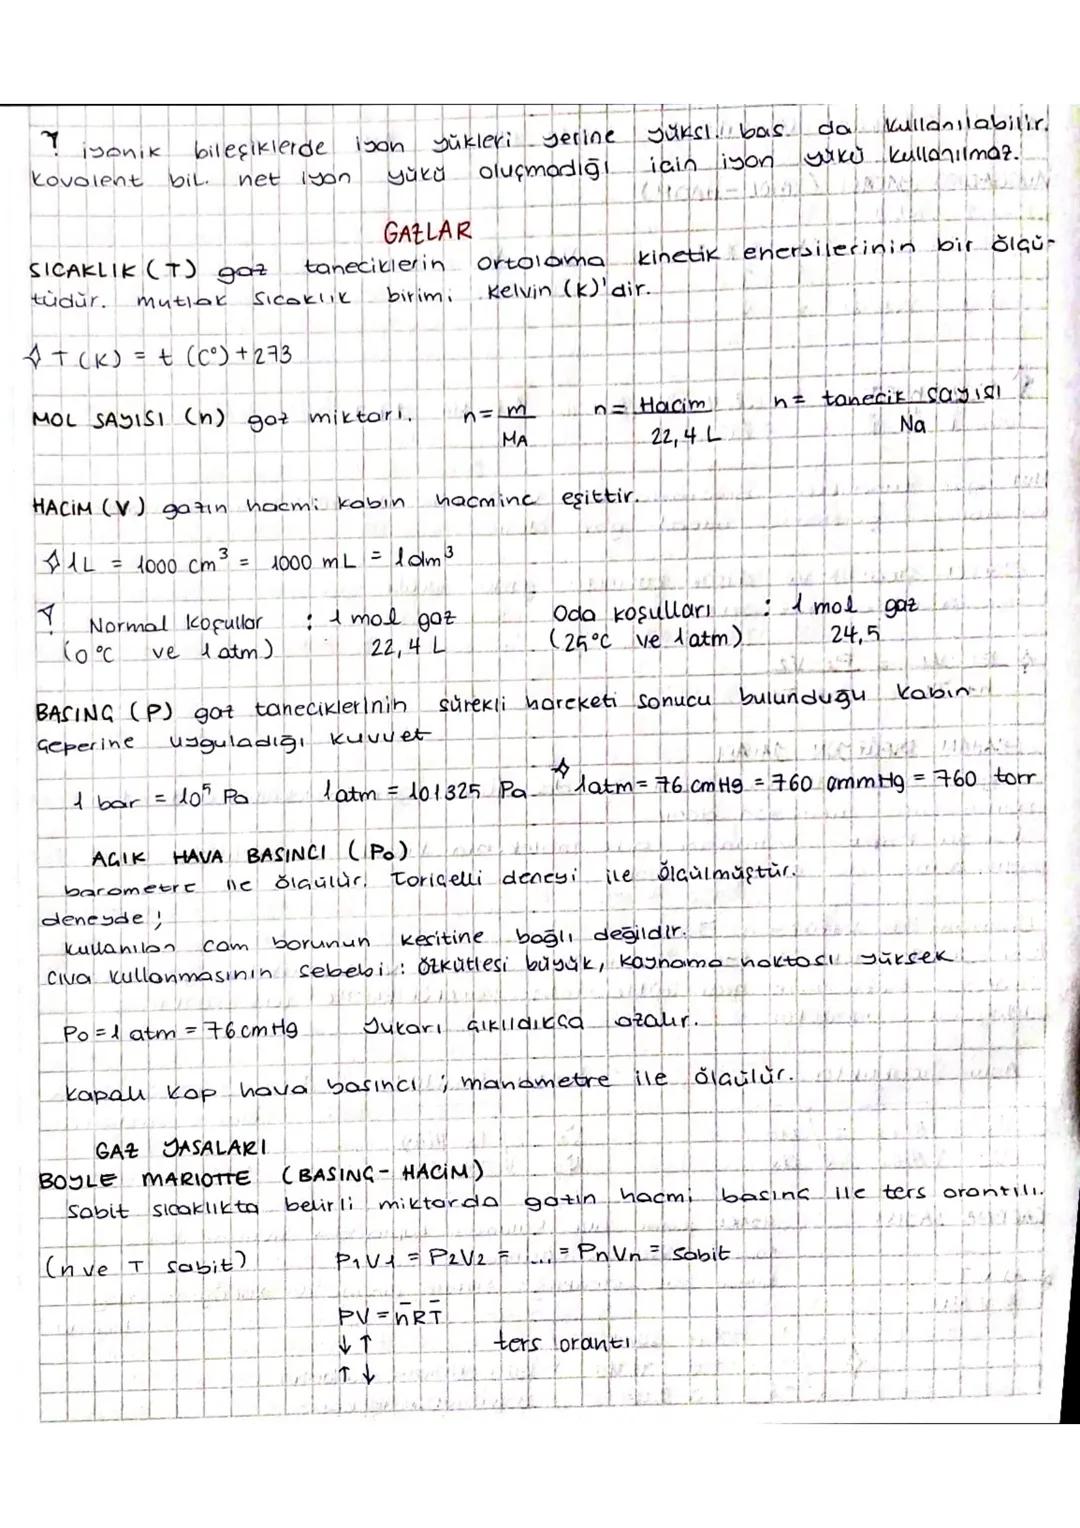 ? iyonik bileşiklerde iyon yükleri yerine yüksl. bas. da kullanılabilir.
kovalent bil. net iyon yükü oluşmadığı için iyon yükü kullanılmaz.
GAZLAR
SICAKLIK (T) gaz taneciklerin ortalama kinetik enerjilerinin bir ölçü-
tüdür. mutlak sıcaklık birimi Kelvin (K)'dir.
T(K) = t (C°) + 273
MOL SAYISI (n) gaz miktarı. n = m / MA n = Hacim / 22,4 L n = tanecik sayısı / Na
HACİM (V) gazın hacmi kabın hacmine eşittir.
1L = 1000 cm³ = 1000 mL = 1dm³
? Normal Koşullar : 1 mol gaz Oda koşulları : 1 mol gaz
(0 °C ve 1 atm) 22,4 L (25°C ve 1 atm) 24,5
BASINÇ (P) gaz taneciklerinin sürekli hareketi sonucu bulunduğu kabın
çeperine uyguladığı kuvvet
1 bar = 10⁵ Pa 1atm = 101325 Pa 1atm = 76 cmHg = 760 mmHg = 760 torr
AÇIK HAVA BASINCI (Po)
barometre ile ölçülür. Toriçelli deneyi ile ölçülmüştür.
deneyde ;
kullanılan cam borunun kesitine bağlı değildir.
cıva kullanmasının sebebi : özkütlesi büyük, kaynama noktası yüksek
Po = 1 atm = 76 cmHg Yukarı çıkıldıkça azalır.
kapalı kap hava basıncı ; manometre ile ölçülür.
GAZ YASALARI
BOYLE MARIOTTE (BASINÇ - HACİM)
Sabit sıcaklıkta belirli miktarda gazın hacmi basınç ile ters orantılı.
(n ve T sabit) P1V1 = P2V2 = ... = PnVn = sabit
PV = n̄RT̄
↓ ↑ ters orantı
↑ ↓